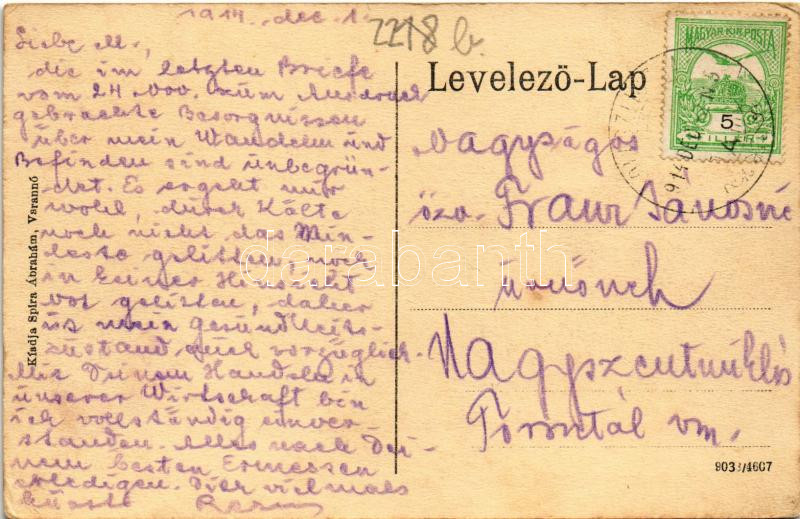 1914. dec. 1.
2218 b.
Liebe M.,
die im letzten Briefe
vom 24 Nov. zum Ausdruck
gebrachte Besorgnissen
über mein Wandeln und
Befinden sind unbegrün-
det. Es ergeht mir
wohl, durch Kälte
noch nicht das Min-
deste gelitten, noch
in keiner Hinsicht
Not gelitten, daher
ist mein Gesundheits-
zustand auch vorzüglich.
Mit Deinem Handeln in
unserer Wirtschaft bin
ich vollständig einver-
standen. Alles nach Dei-
nem besten Ermessen
erledigen. Dier vielmals
küsst
Kiadja Spira Ábrahám, Varannó
Levelező-Lap
MAGYAR KIR. POSTA
5
FILLÉR
914 DEC
Nagyságos
özv. Franz Jánosné
úrnőnek
Nagyszentmiklós
Torontál vm.
903 /4607
darabanth